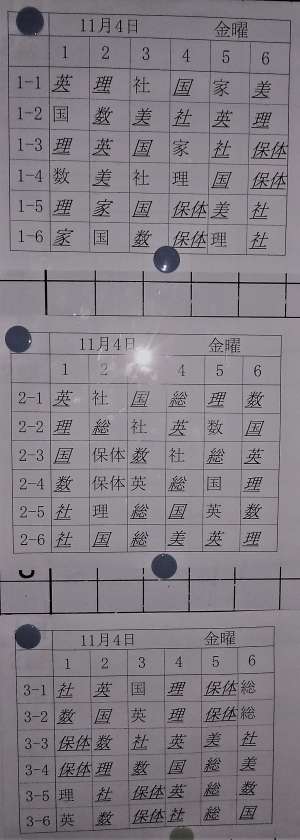 11月4日 金曜
1 2 3 4 5 6
1-1 英 理 社 国 家 美
1-2 国 数 美 社 英 理
1-3 理 英 国 家 社 保体
1-4 数 美 社 理 国 保体
1-5 理 家 国 保体 美 社
1-6 家 国 数 保体 理 社
11月4日 金曜
1 2 4 5 6
2-1 英 社 国 総 理 数
2-2 理 総 社 英 数 国
2-3 国 保体 数 社 総 英
2-4 数 保体 英 総 国 理
2-5 社 理 総 国 英 数
2-6 社 国 総 美 英 理
11月4日 金曜
1 2 3 4 5 6
3-1 社 英 国 理 保体 総
3-2 数 国 英 理 保体 総
3-3 保体 数 社 英 美 社
3-4 保体 理 数 国 総 美
3-5 理 社 保体 英 総 数
3-6 英 数 保体 社 総 国